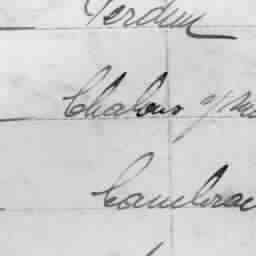 Verdun
Chalons s/Ma
Cambrai